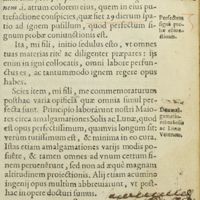 nem .i. atrum colorem eius, quem in eius pu-
trefactione conspicies, quæ fiet 29 dierum spa-
tio ad ignem pusillum, quod perfectum si-
gnum probæ coniunctionis est.
Ita, mi fili, initio sedulus esto,
tuas materias ritè ac diligenter præpares: ijs
enim in igni collocatis, omni labore perfun-
ctus es, ac tantummodo ignem regere opus
habes.
Scies item, mi fili, me commemoraturum
posthac varia opuscula quæ omnia simul per
fecta sunt. Principio laborauere nostri Maio-
res circa amalgamationes Solis ac Lunæ, quod
est opus perfectissimum, quamuis longum fit
verum tutissimum est, & minimo in eo cura.
Istas etiam amalgamationes varijs modis
posite, & tamen omnes ad vnum centrum
peruenerunt, sed non ad æquè magnam
altitudinem proiectionis. Alij etiam acumine
ingenij opus multum abbreuiauere, vt post-
hac in opere docturi sumus.
Perfectum
signum pro-
bæ
ac Lunæ